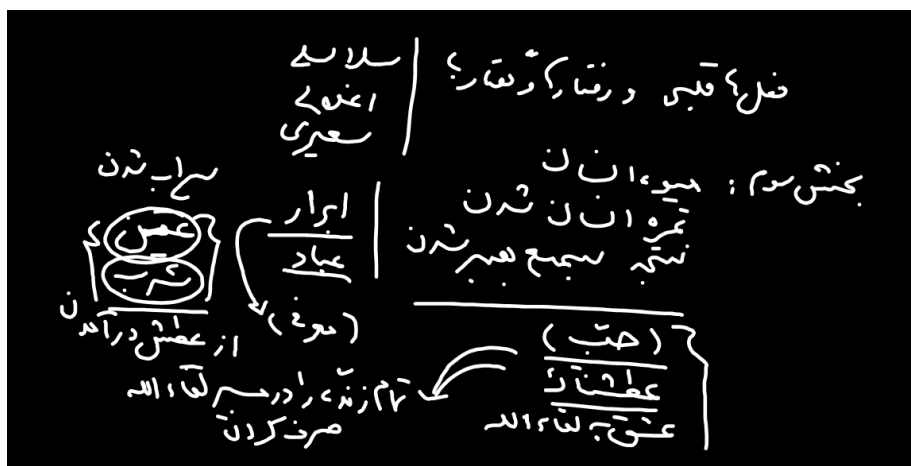 فعل؟ قلبی و رفتاری و گفتاری؟
سلاسلی
اغلالی
سعیری
بخش سوم: میوه انسان
ثمره انسان شدن
نتیجه سمیع بصیر شدن
ابرار
عباد
(مونی)
سیراب شدن
عطش
شرب
از عطش درآمدن
(حبّ)
عطشناک
عشق به لقاء الله
تمام زندگی را در مسیر لقاء الله
صرف کردن